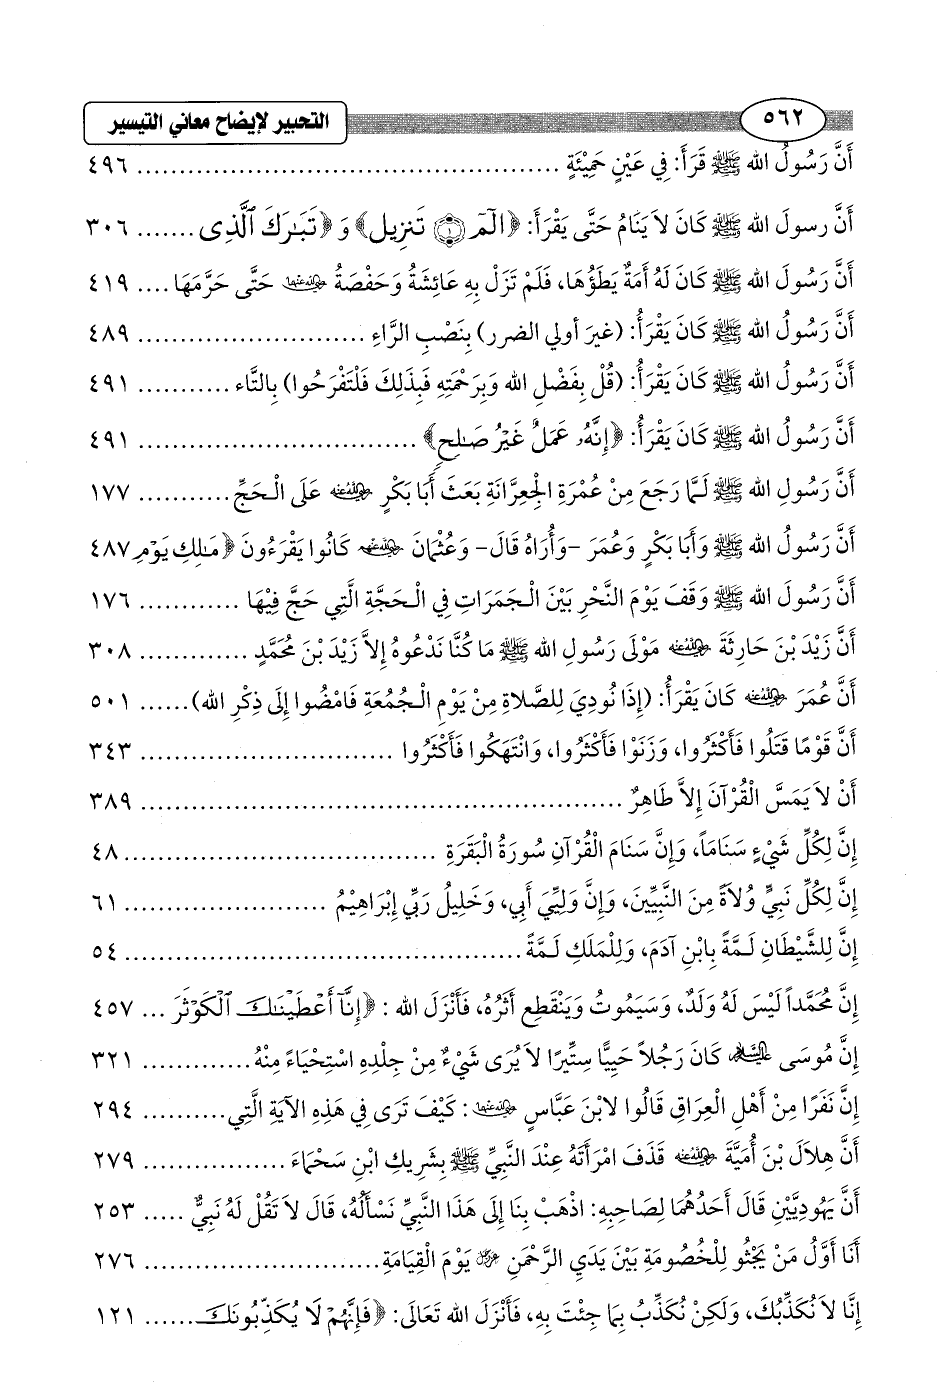 ٥٦٢
التحبير لإيضاح معاني التيسير
أَنَّ رَسُولُ الله ﷺ قَرَأَ: فِي عَيْنٍ حَمِئَةٍ ................................................ ٤٩٦
أَنَّ رسولَ الله ﷺ كَانَ لاَ يَنَامُ حَتَّى يَقْرَأَ: ﴿الٓمٓ ۝١ تَنزِيل﴾ وَ ﴿تَبَارَكَ ٱلَّذِى ....... ٣٠٦
أَنَّ رَسُولَ الله ﷺ كَانَ لَهُ أَمَةٌ يَطَؤُهَا، فَلَمْ تَزَلْ بِهِ عَائِشَةُ وَحَفْصَةُ رضي الله عنهما حَتَّى حَرَّمَهَا .... ٤١٩
أَنَّ رَسُولُ الله ﷺ كَانَ يَقْرَأُ: (غيرَ أولي الضرر) بِنَصْبِ الرَّاءِ ........................... ٤٨٩
أَنَّ رَسُولُ الله ﷺ كَانَ يَقْرَأُ: (قُلْ بِفَضْلِ الله وَبِرَحْمَتِهِ فَبِذَلِكَ فَلْتَفْرَحُوا) بِالتَّاء ............ ٤٩١
أَنَّ رَسُولُ الله ﷺ كَانَ يَقْرَأُ: ﴿إِنَّهُۥ عَمَلٌ غَيْرُ صَٰلِحٍ﴾ ................................ ٤٩١
أَنَّ رَسُولِ الله ﷺ لَمَّا رَجَعَ مِنْ عُمْرَةِ الْجِعِرَّانَةِ بَعَثَ أَبَا بَكْرٍ رضي الله عنه عَلَى الْحَجِّ............ ١٧٧
أَنَّ رَسُولُ الله ﷺ وَأَبَا بَكْرٍ وَعُمَرَ -وَأُرَاهُ قَالَ- وَعُثْمَانَ رضي الله عنهم كَانُوا يَقْرَءُونَ ﴿مَٰلِكِ يَوْمِ ٤٨٧
أَنَّ رَسُولَ الله ﷺ وَقَفَ يَوْمَ النَّحْرِ بَيْنَ الْجَمَرَاتِ فِي الْحَجَّةِ الَّتِي حَجَّ فِيْهَا ............ ١٧٦
أَنَّ زَيْدَ بْنَ حَارِثَةَ رضي الله عنه مَوْلَى رَسُولِ الله ﷺ مَا كُنَّا نَدْعُوهُ إِلاَّ زَيْدَ بْنَ مُحَمَّدٍ ............ ٣٠٨
أَنَّ عُمَرَ رضي الله عنه كَانَ يَقْرَأُ: (إِذَا نُودِيَ لِلصَّلاةِ مِنْ يَوْمِ الْجُمُعَةِ فَامْضُوا إِلَى ذِكْرِ الله)...... ٥٠١
أَنَّ قَوْمًا قَتَلُوا فَأَكْثَرُوا، وَزَنَوْا فَأَكْثَرُوا، وَانْتَهَكُوا فَأَكْثَرُوا ............................ ٣٤٣
أَنْ لاَ يَمَسَّ الْقُرْآنَ إِلاَّ طَاهِرٌ ....................................................... ٣٨٩
إِنَّ لِكُلِّ شَيْءٍ سَنَاماً، وَإِنَّ سَنَامَ الْقُرْآنِ سُورَةُ الْبَقَرَةِ .................................... ٤٨
إِنَّ لِكُلِّ نَبِيٍّ وُلاَةً مِنَ النَّبِيِّينَ، وَإِنَّ وَلِيِّيَ أَبِي، وَخَلِيلُ رَبِّي إِبْرَاهِيْمُ ........................ ٦١
إِنَّ لِلشَّيْطَانِ لَمَّةً بِابْنِ آدَمَ، وَلِلْمَلَكِ لَمَّةً .............................................. ٥٤
إِنَّ مُحَمَّداً لَيْسَ لَهُ وَلَدٌ، وَسَيَمُوتُ وَيَنْقَطِعِ أَثَرُهُ، فَأَنْزَلَ الله : ﴿إِنَّآ أَعْطَيْنَٰكَ ٱلْكَوْثَرَ ... ٤٥٧
إِنَّ مُوسَى عليه السلام كَانَ رَجُلاً حَيِيًّا سِتِّيرًا لاَ يُرَى شَيْءٌ مِنْ جِلْدِهِ اسْتِحْيَاءً مِنْهُ............. ٣٢١
إِنَّ نَفَرًا مِنْ أَهْلِ الْعِرَاقِ قَالُوا لابْنَ عَبَّاسٍ رضي الله عنهما: كَيْفَ تَرَى فِي هَذِهِ الآيَةِ الَّتِي.......... ٢٩٤
أَنَّ هِلاَلَ بْنَ أُمَيَّةَ رضي الله عنه قَذَفَ امْرَأَتَهُ عِنْدَ النَّبِيِّ ﷺ بِشَرِيكِ ابْنِ سَحْمَاءَ ................ ٢٧٩
أَنَّ يَهُودِيَّيْنِ قَالَ أَحَدُهُمَا لِصَاحِبِهِ: اذْهَبْ بِنَا إِلَى هَذَا النَّبِيِّ نَسْأَلُهُ، قَالَ لاَ تَقُلْ لَهُ نَبِيٌّ ..... ٢٥٣
أَنَا أَوَّلُ مَنْ يَجْثُو لِلْخُصُومَةِ بَيْنَ يَدَيِ الرَّحْمَنِ ﷻ يَوْمَ الْقِيَامَةِ........................... ٢٧٦
إِنَّا لاَ نُكَذِّبُكَ، وَلَكِنْ نُكَذِّبُ بِمَا جِئْتَ بِهِ، فَأَنْزَلَ الله تَعَالَى: ﴿فَإِنَّهُمْ لَا يُكَذِّبُونَكَ...... ١٢١